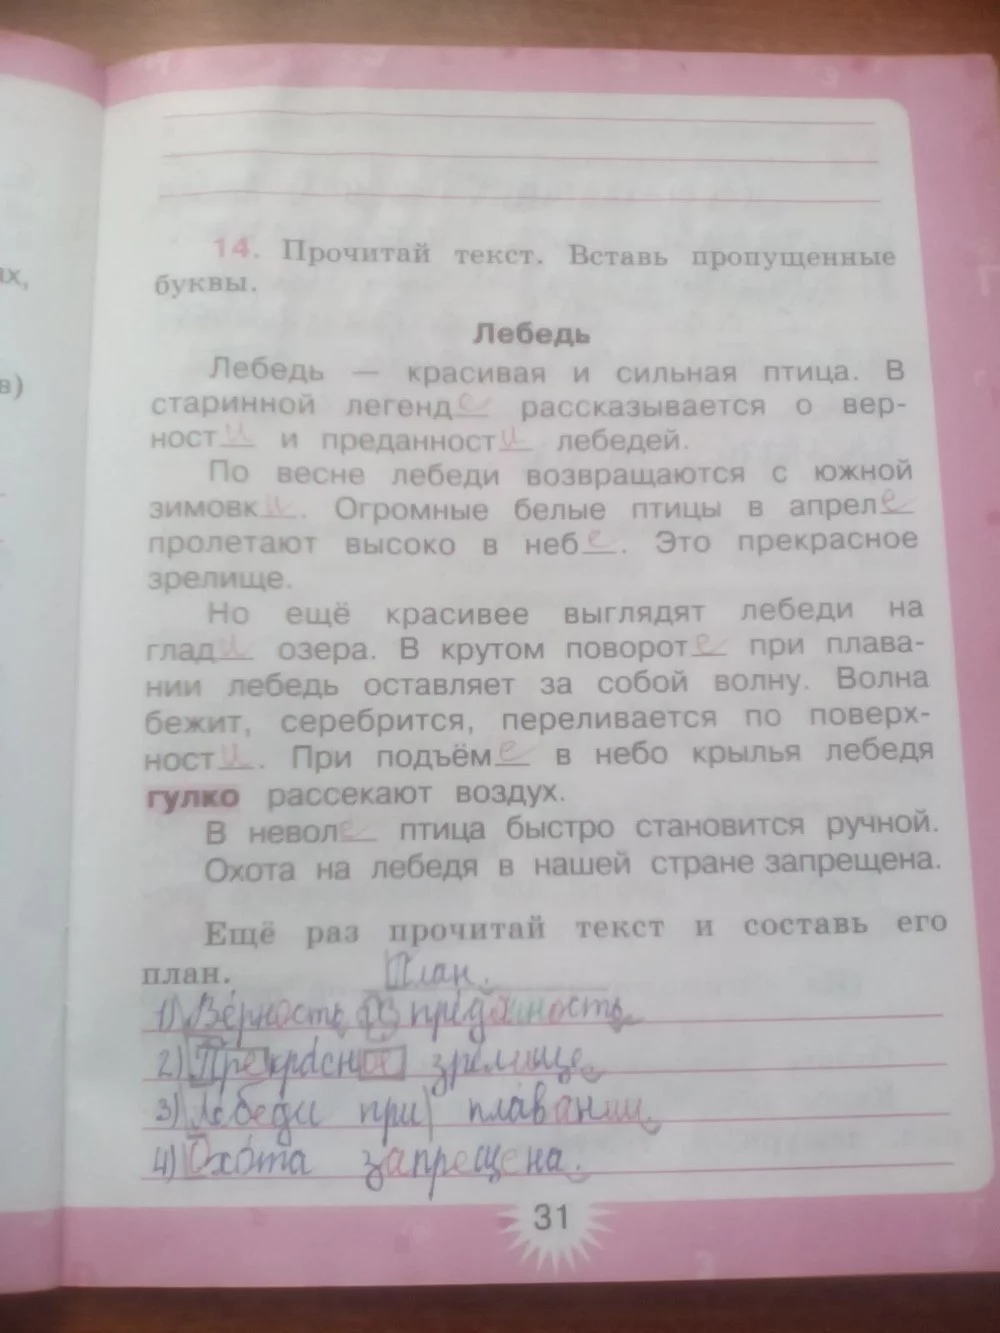 14. Прочитай текст. Вставь пропущенные
буквы.
Лебедь
Лебедь — красивая и сильная птица. В
старинной легенде рассказывается о вер-
ности и преданности лебедей.
По весне лебеди возвращаются с южной
зимовки. Огромные белые птицы в апреле
пролетают высоко в небе. Это прекрасное
зрелище.
Но ещё красивее выглядят лебеди на
глади озера. В крутом повороте при плава-
нии лебедь оставляет за собой волну. Волна
бежит, серебрится, переливается по поверх-
ности. При подъёме в небо крылья лебедя
гулко рассекают воздух.
В неволе птица быстро становится ручной.
Охота на лебедя в нашей стране запрещена.
Ещё раз прочитай текст и составь его
план. План.
1) Верность и преданность.
2) Прекрасное зрелище.
3) Лебеди при плавании.
4) Охота запрещена.
31